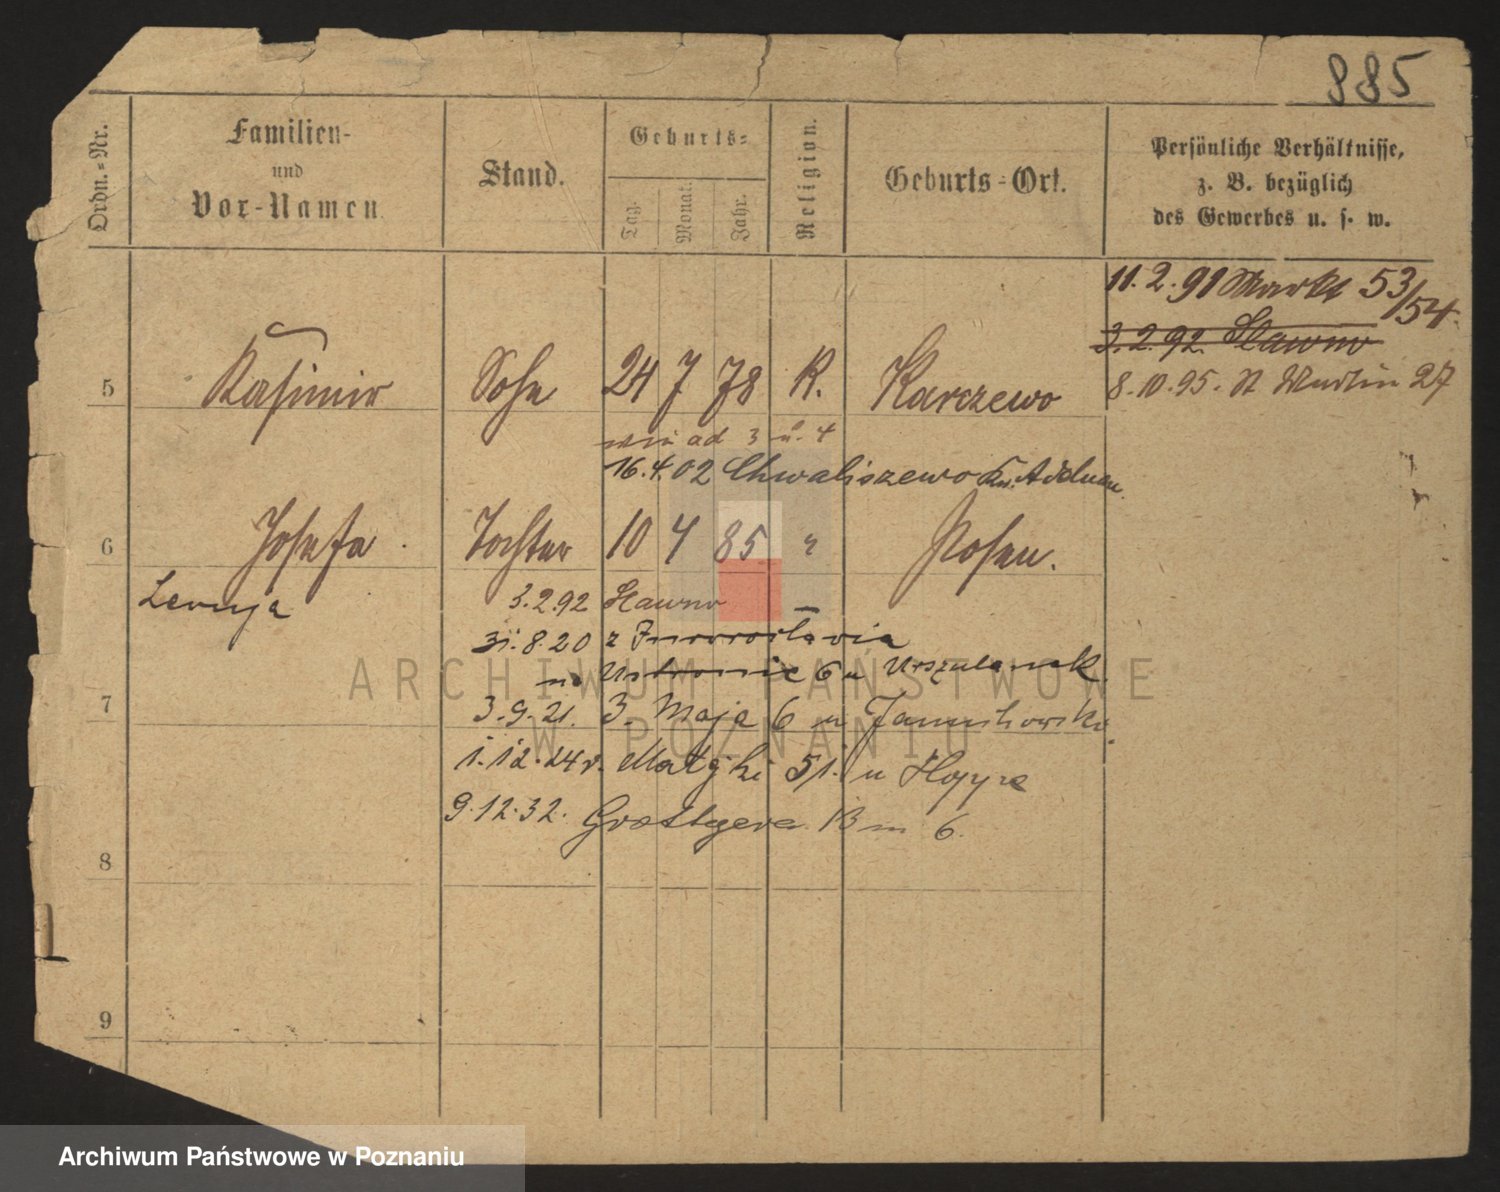 885
Ordn.-Nr.
Familien-
und
Vor-Namen
Stand.
Geburts-
Tag.
Monat.
Jahr.
Religion.
Geburts-Ort.
Persönliche Verhältnisse,
z. B. bezüglich
des Gewerbes u. s. w.
11. 2. 91 Markt 53/54.
3. 2. 92 Slawno
8. 10. 95. St Martin 27
5 Kasimir Sohn 24 7 78 K. Karczewo
wie ad 3 u. 4
16. 4. 02 Chwaliszewo
6 Josefa Tochter 10 4 85 " Posen.
3. 2. 92 Slawno
31. 8. 20 z Inowrocławia
na Ustronie 6 u Urszulanek
7
3. 9. 21. 3. Maja 6 u
1. 12. 24 r. Matejki 51. u Hoppe
9. 12. 32. Grottgera 13 m 6.
8
9
ARCHIWUM PAŃSTWOWE
W POZNANIU
Archiwum Państwowe w Poznaniu